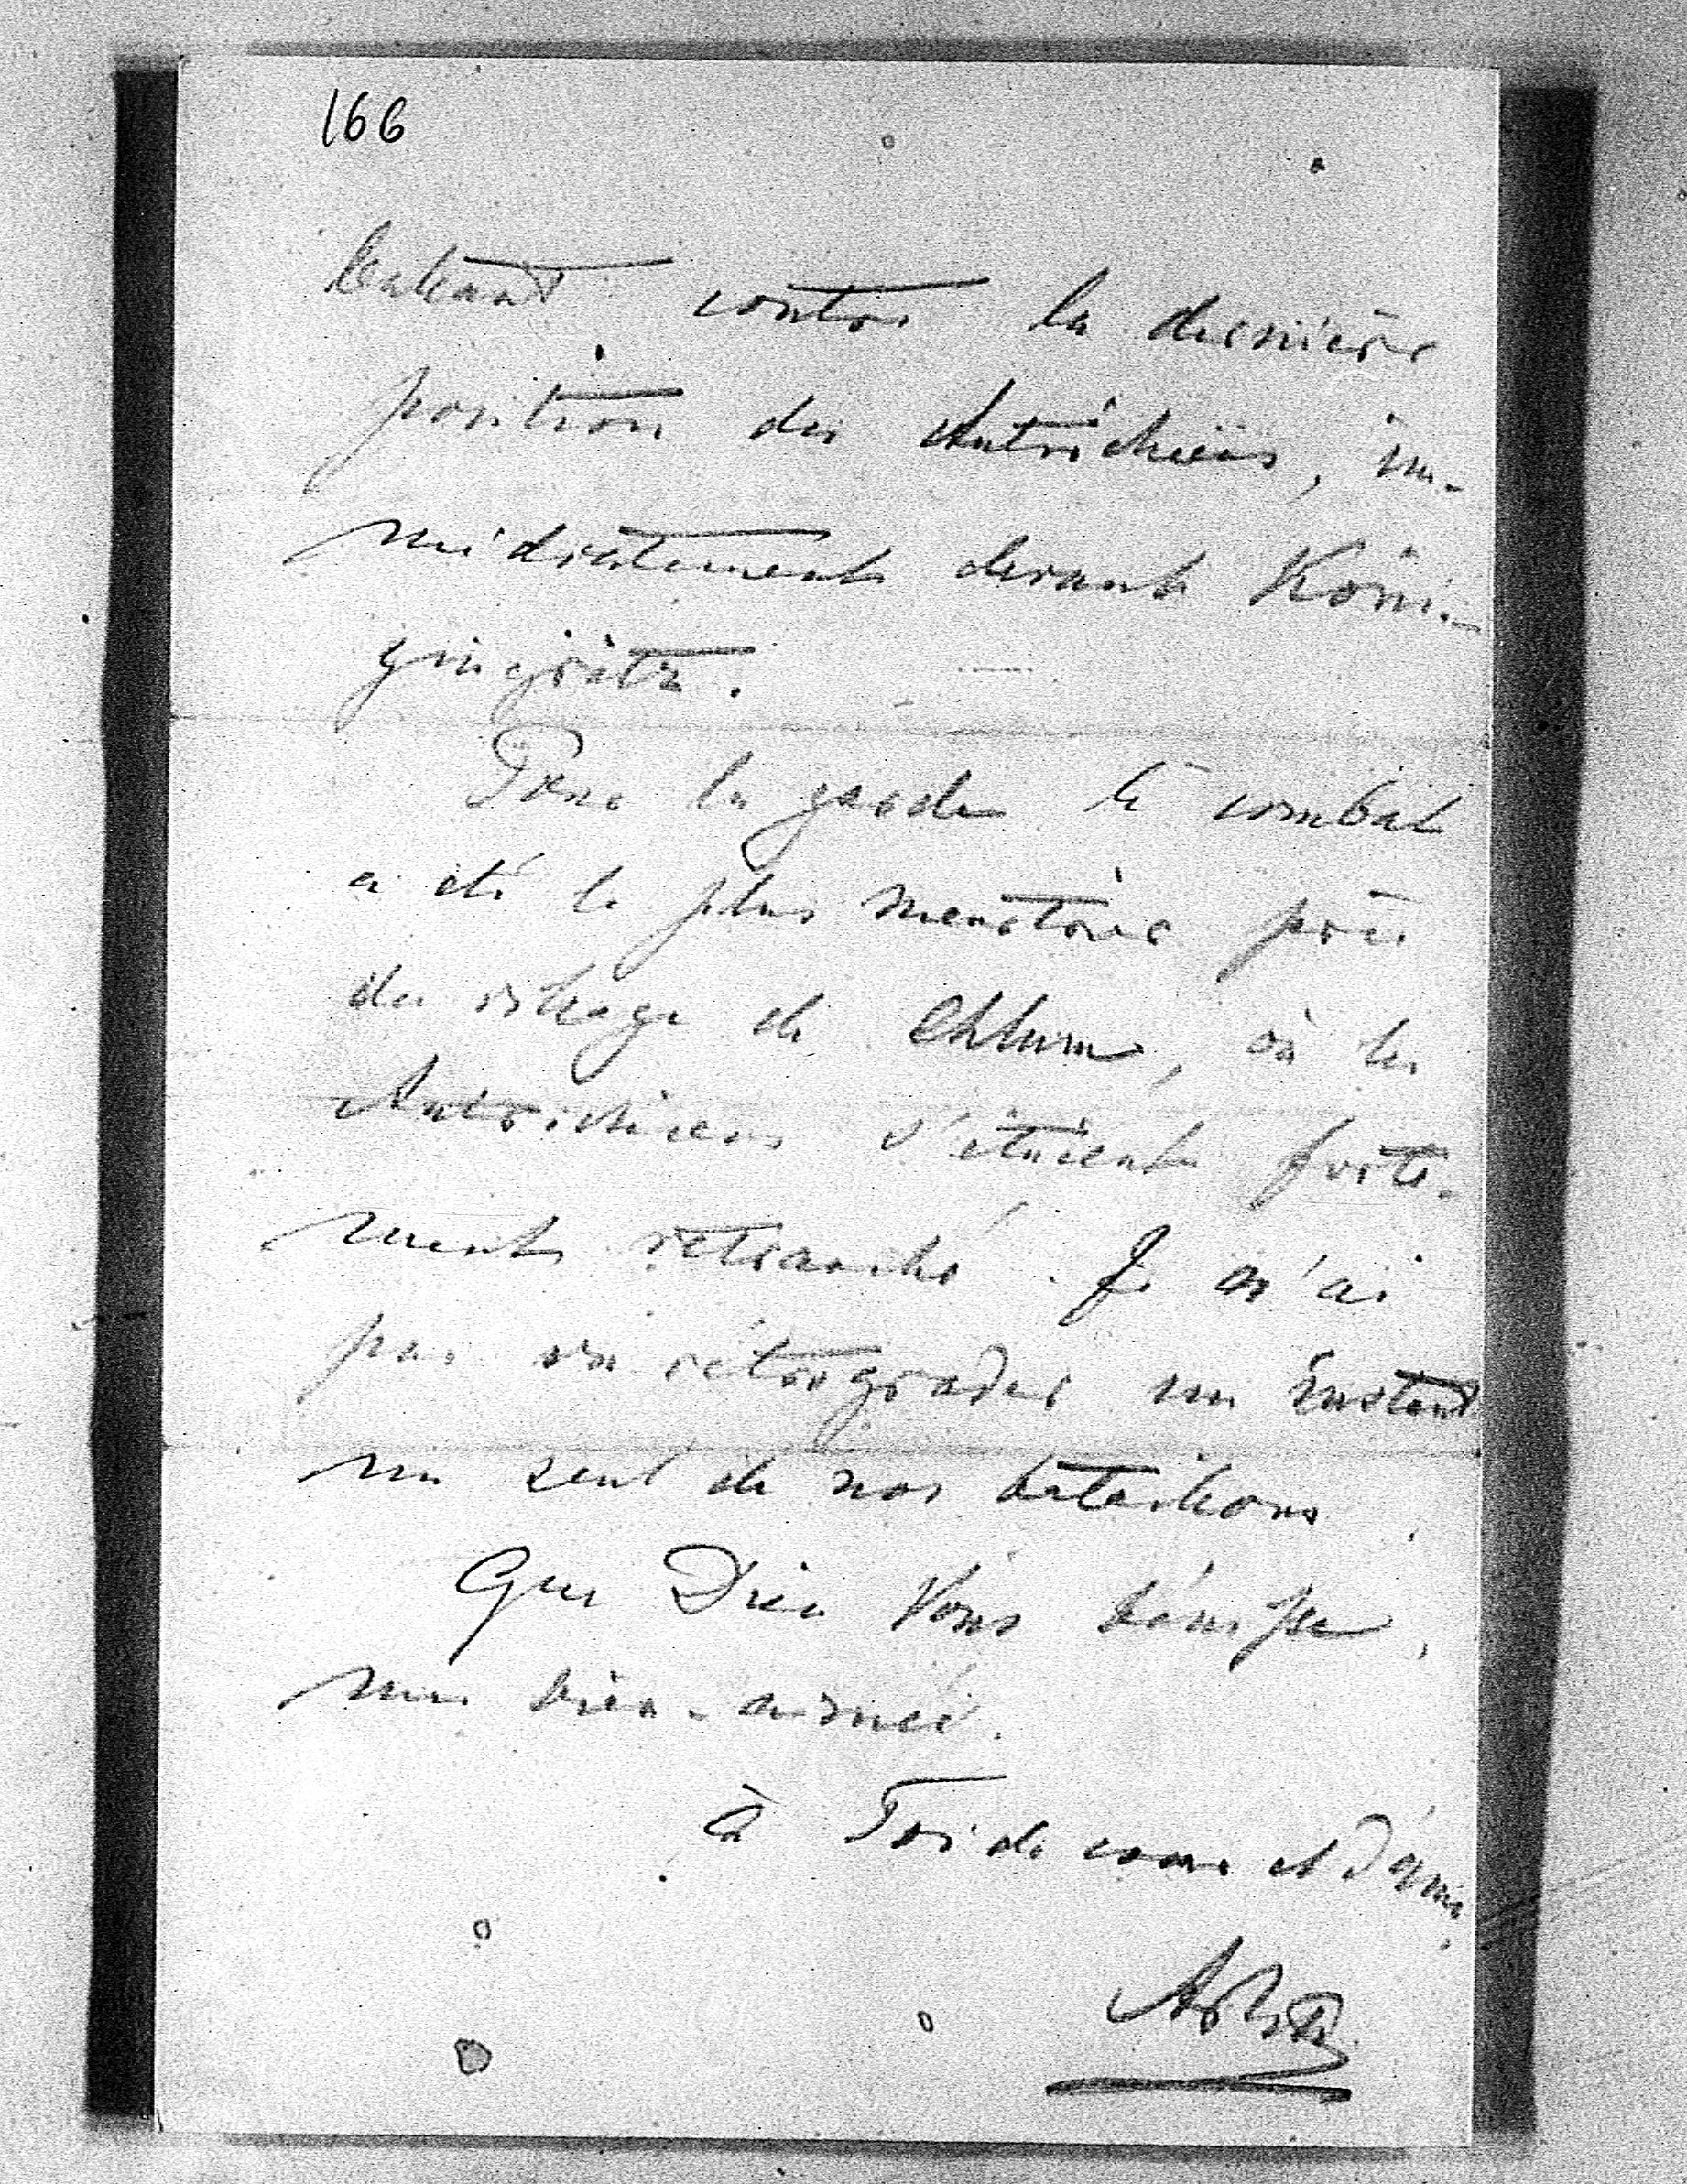 166
battant contre la dernière
position des Autrichiens, im-
médiatement devant Köni-
gingrätz.
Pour la garde le combat
a été le plus meurtrier près
du village de Chlum, où les
Autrichiens s'étaient forte-
ment retranché. Je n'ai
pas vu rétrograder un instant
un seul de nos bataillons.
Que Dieu Vous bénisse,
mon bien-aimé.
à Toi de cœur et d'âme